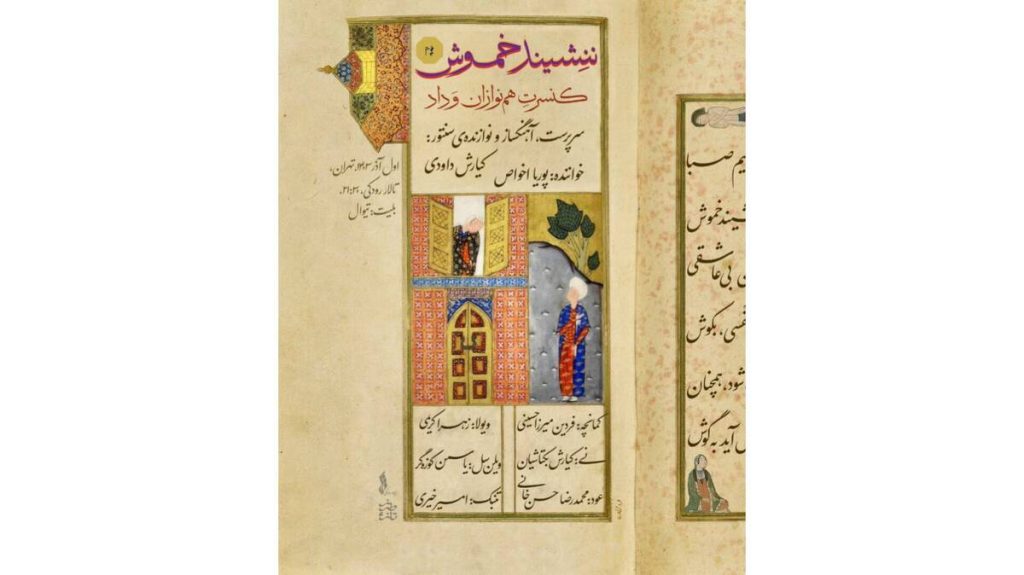 ننشیند خموش
کنسرتِ هم‌نوازان وَداد
سرپرست، آهنگساز و نوازنده‌ی سنتور:
کیارش داودی
خواننده: پوریا اخواص
اول آذر ۱۴۰۳، تهران،
تالار رودکی، ۲۱:۳۰.
بلیت: تیوال
کمانچه: فردین میرزاحسینی
نی: کیارش بکتاشیان
عود: محمدرضا حسن‌خانی
ویولا: زهرا کرمی
ویلن‌سل: یاسمن کوزه‌گر
تنبک: امیر خیری
یم صبا
شیند خموش
بی‌عاشقی
بکوش
شود، همچنان
آید به گوش